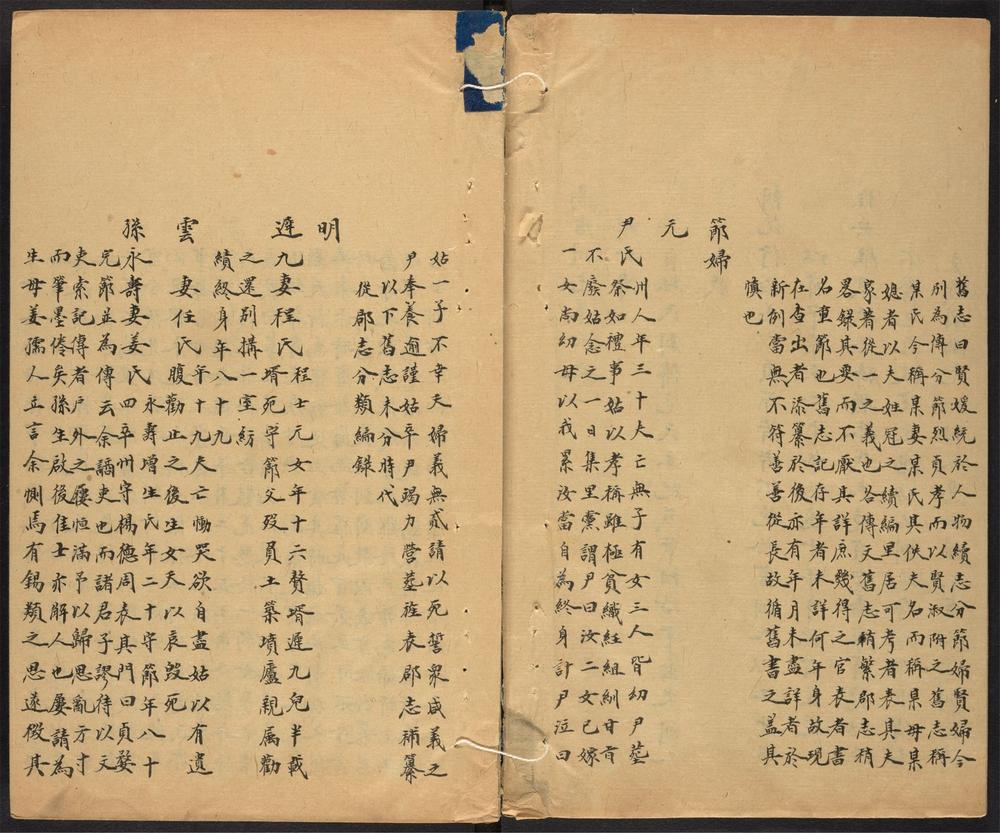 舊志曰賢媛統於人物續志分節婦賢婦今
別為傳分節烈貞孝而以賢淑附之舊志稱
某氏今稱某妻某氏其佚夫名而稱某母某
媳者以夫姓冠之續編里居可考者表其夫
家著從一之義也各傳文舊志稍繁郡志稍
畧錄其要而不厭其詳庶幾得之官表者書
名重節也舊志記存年者未詳何年身故現
在查出者添纂於後亦有年月未盡詳者於
新例當無不符善善從長故循舊書之蓋其
慎也
節婦
元
尹氏州人年三十夫亡無子有女三人皆幼尹塟
祭如禮事姑以孝稱雖極貧織紝組紃甘旨
不廢姑念之一日集里黨謂尹曰汝二女已嫁
一女尚幼毋以我累汝當自為終身計尹泣曰
姑一子不幸夫婦義無貳請以死誓衆咸義之
尹奉養逾謹姑卒尹竭力營塟旌表郡志補纂
以下舊志未分時代
從郡志分類編錄
明
遲九妻程氏程士元女年十六贅壻遲九兒半載
壻死守節父歿負土築墳廬親属勸
之還别搆一室紡
績終身年八十九
雲妻任氏年十九夫亡慟哭欲自盡姑以有遺
腹勸止之後生女夭以哀毀死
孫永壽妻姜氏永壽增生氏年二十守節年八十
四卒州守楊德周表其門曰貞婺
完節並為傳云余謫吏也而諸君子謬待以文
吏索記傳者户外之屨恒滿予以歸思亂方寸
而肇墨倦矣孫生啟後佳士亦解人也屢請為
生母姜孺人立言余惻焉有錫類之思遂徵其